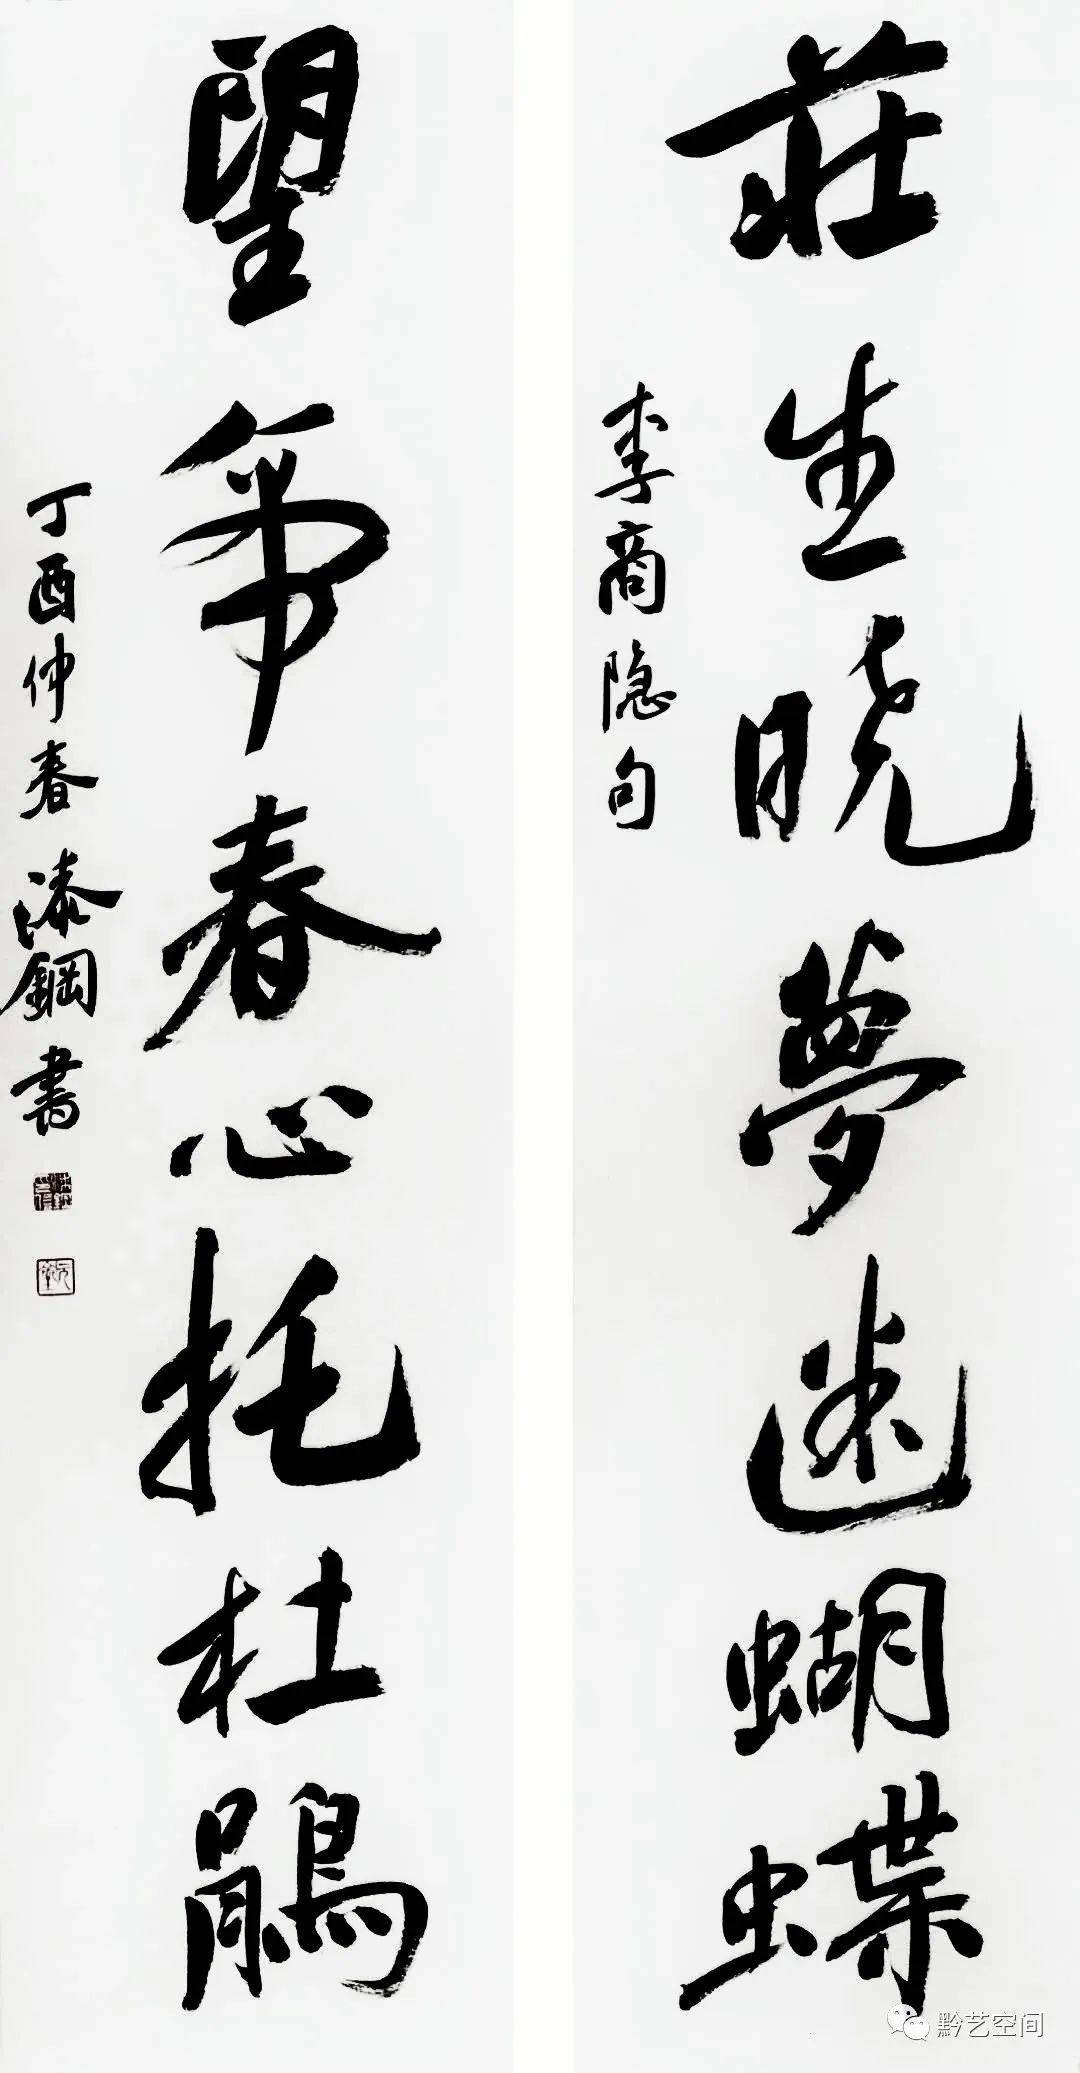 莊生晓夢迷蝴蝶
李商隐句
望帝春心托杜鵑
丁酉仲春漆鋼書
黔艺空间